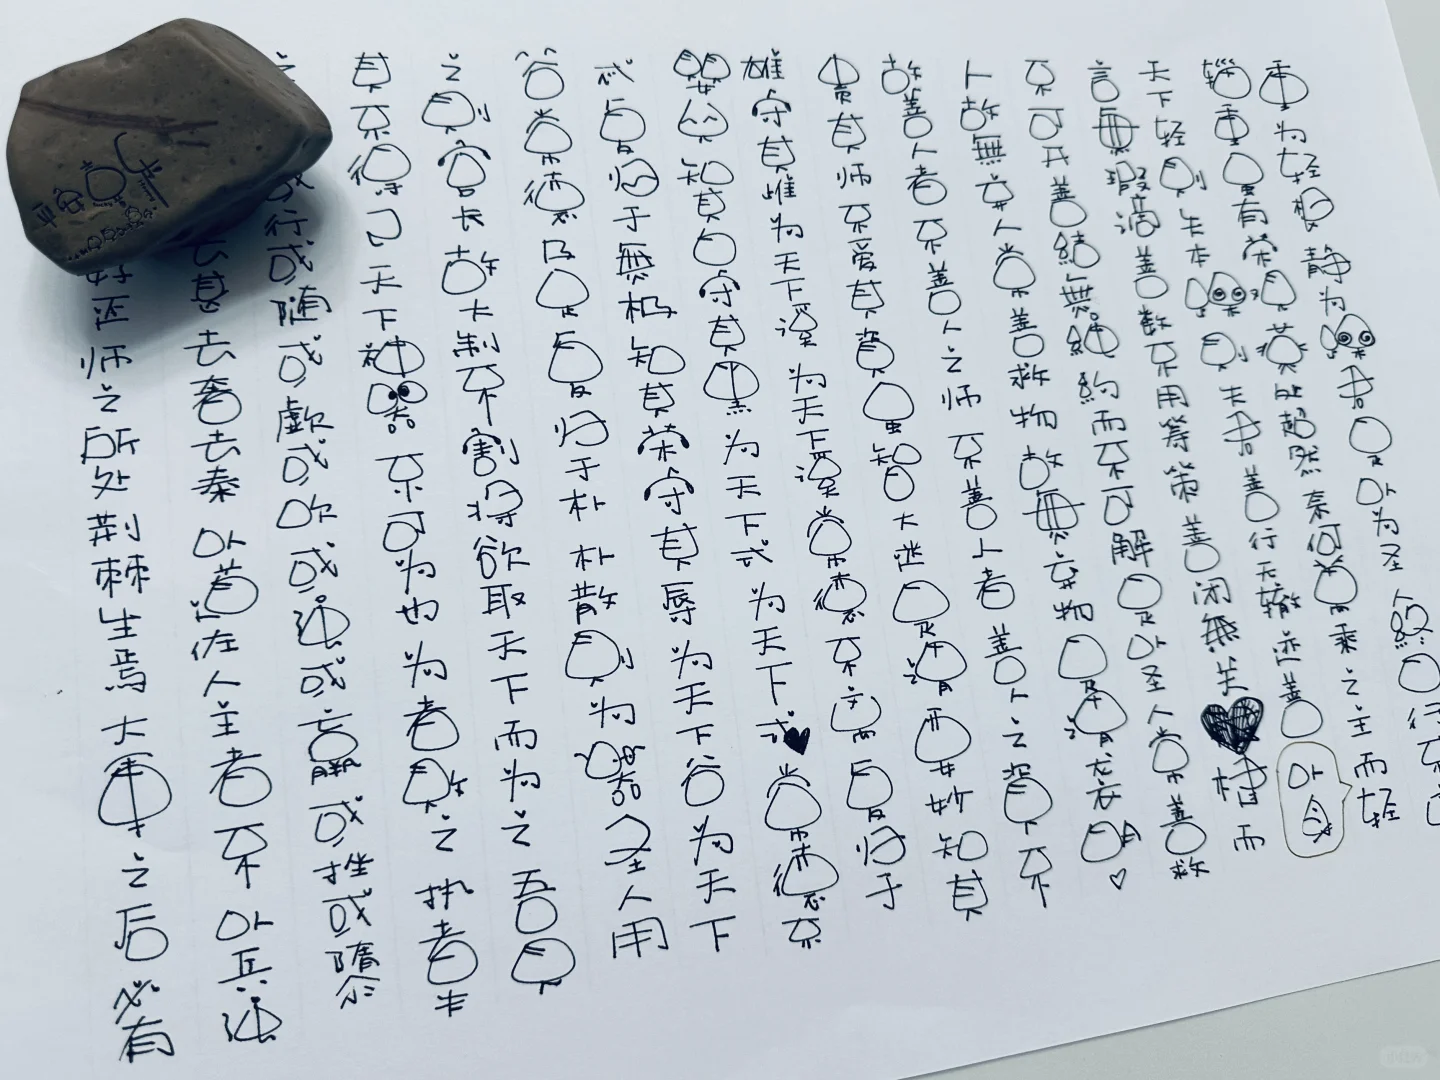 重为轻根静为躁君是以为圣人終日行不
辎重虽有荣观燕处超然奈何萬乘之主而轻
天下轻则失本躁则失君善行无辙迹善
以身
言無瑕谪善数不用筹策善闭無关楗而
不可开善結無繩約而不可解是以圣人常善救
人故無弃人常善救物故無弃物是谓袭明
故善人者不善人之师不善人者善人之資不
貴其师不爱其資虽智大迷是谓要妙知其
雄守其雌为天下溪为天下溪常德不离复归于
婴儿知其白守其黑为天下式为天下式常德不
忒复归于無极知其荣守其辱为天下谷为天下
谷常德乃足复归于朴朴散则为器圣人用
之则官长故大制不割将欲取天下而为之吾見
其不得已天下神器不可为也为者敗之执者失
之或行或随或歔或吹或强或羸或挫或隳
去甚去奢去泰以道佐人主者不以兵强
好还师之所处荆棘生焉大軍之后必有